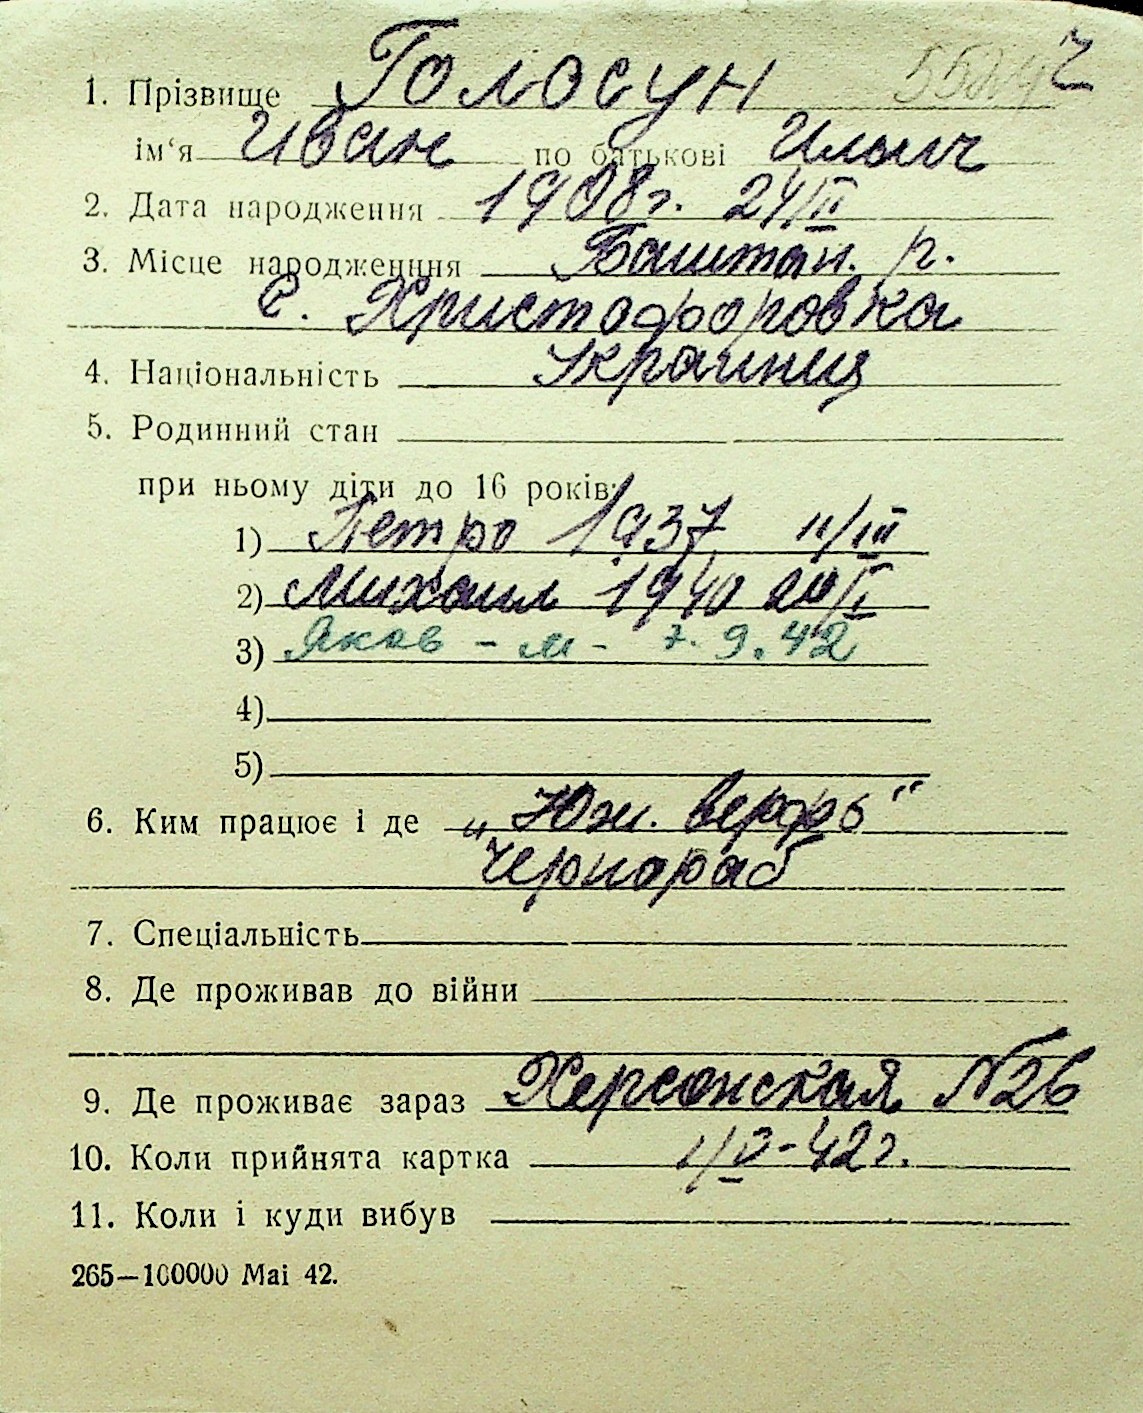 1. Прізвище Голосун Ч
ім‘я Иван по батькові Ильич
2. Дата народження 1908г. 24/II
3. Місце народженння Баштан. р.
с. Христофоровка
4. Національність Украинц
5. Родинний стан
при ньому діти до 16 років:
1) Петро 1937 11/III
2) Михаил 1940 20/I
3) Яков - м - 7.9.42
4)
5)
6. Ким працює і де „Юж. верфь“
Чернораб
7. Спеціальність
8. Де проживав до війни
9. Де проживає зараз Херсонская N26
10. Коли прийнята картка 1/V-42г.
11. Коли і куди вибув
265—100000 Mai 42.